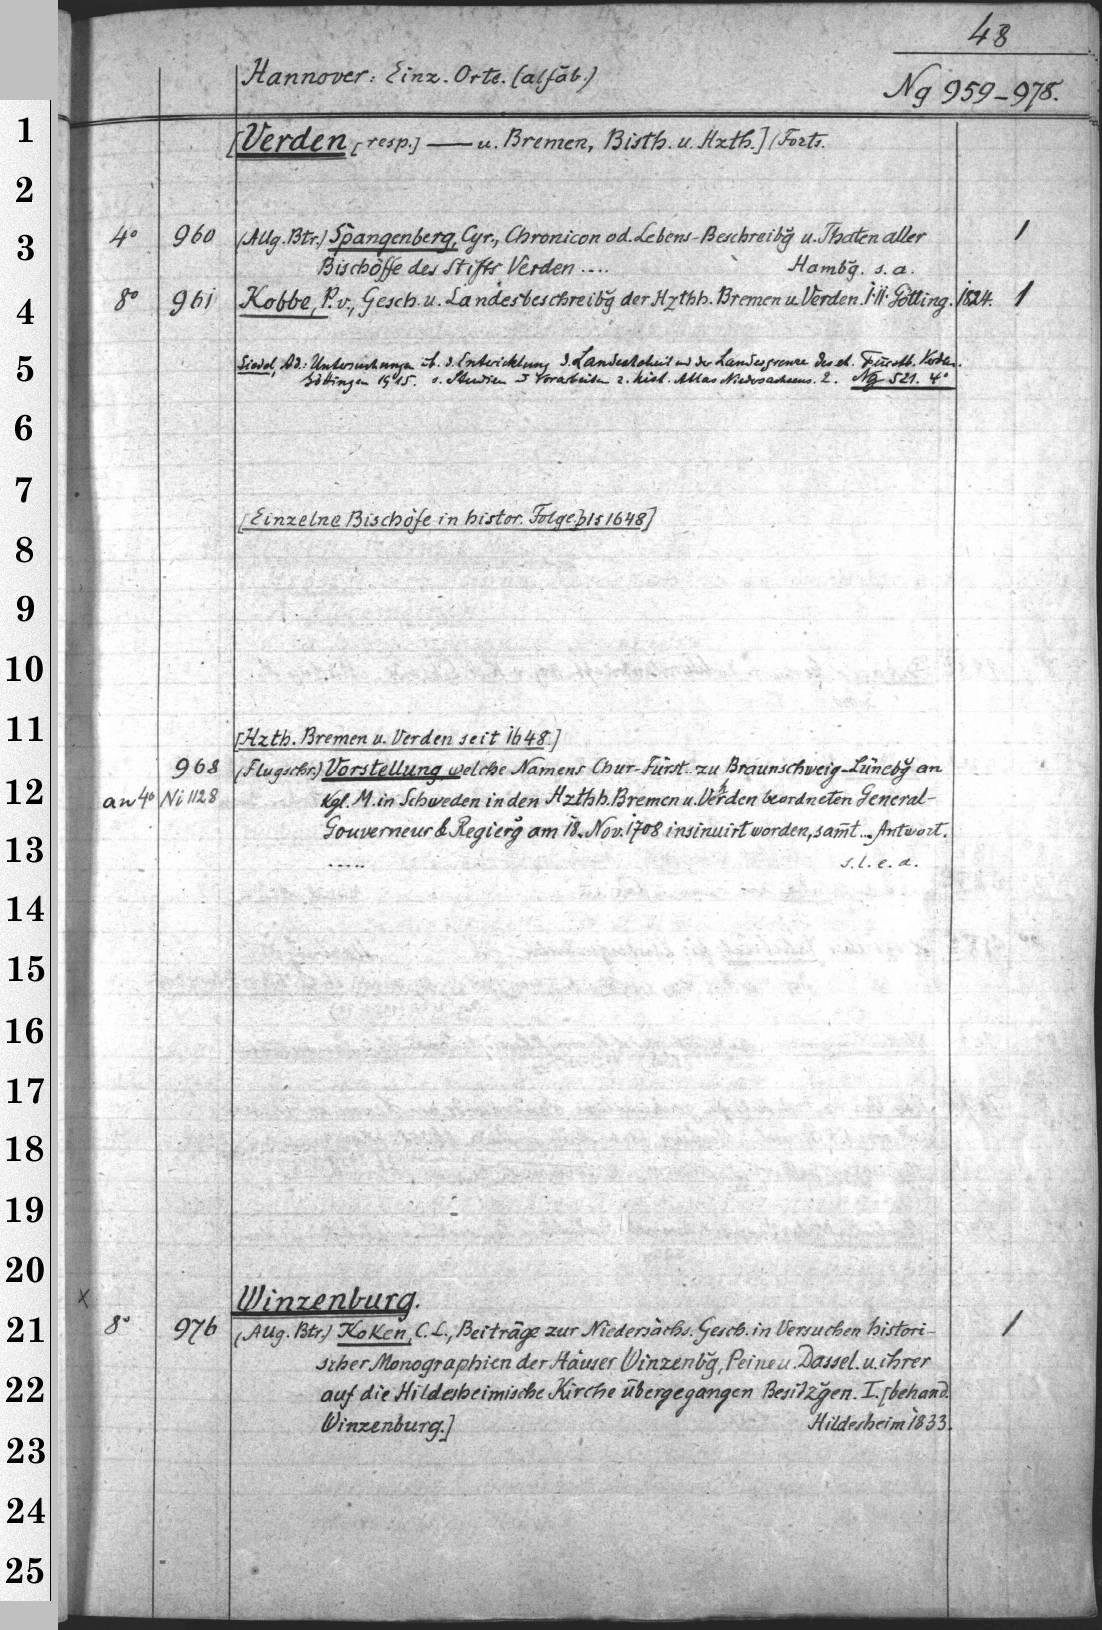 48
Hannover: Einz. Orte. (alfab.)
Ng 959-978.
[Verden [resp.] — u. Bremen, Bisth. u. Hzth.] (Forts.
4° 960 (Allg. Btr.) Spangenberg, Cyr., Chronicon od. Lebens-Beschreibg̃ u. Thaten aller 1
Bischöffe des Stiffts Verden .... Hambg̃. s. a.
8° 961 Kobbe, P. v., Gesch. u. Landesbeschreibg̃ der Hzthh. Bremen u. Verden. I.II. Götting. 1824. 1
Siedel, Ad.: Untersuchungen üb. d. Entwicklung d. Landeshoheit und der Landesgrenze des eh. Fürstb. Verden.
Göttingen 1915. s. Studien u. Vorarbeiten z. hist. Atlas Niedersachsens. 2. Ng 521. 4°
[Einzelne Bischöfe in histor. Folge bis 1648]
[Hzth. Bremen u. Verden seit 1648.]
968 (Flugschr.) Vorstellung welche Namens Chur-Fürst. zu Braunschweig-Lünebg̃ an
an 4° Ni 1128 Kgl. M. in Schweden in den Hzthh. Bremen u. Verden beordneten General-
Gouverneur & Regierg̃ am 18. Nov. 1708 insinuirt worden, sam̃t ... Antwort.
..... s. l. e. a.
X
Winzenburg.
8° 976 (Allg. Btr.) Koken, C. L., Beiträge zur Niedersächs. Gesch. in Versuchen histori- 1
scher Monographien der Häuser Winzenbg̃, Peine u. Dassel. u. ihrer
auf die Hildesheimische Kirche übergegangen Besitzg̃en. I. [behand.
Winzenburg.] Hildesheim 1833.
1
2
3
4
5
6
7
8
9
10
11
12
13
14
15
16
17
18
19
20
21
22
23
24
25